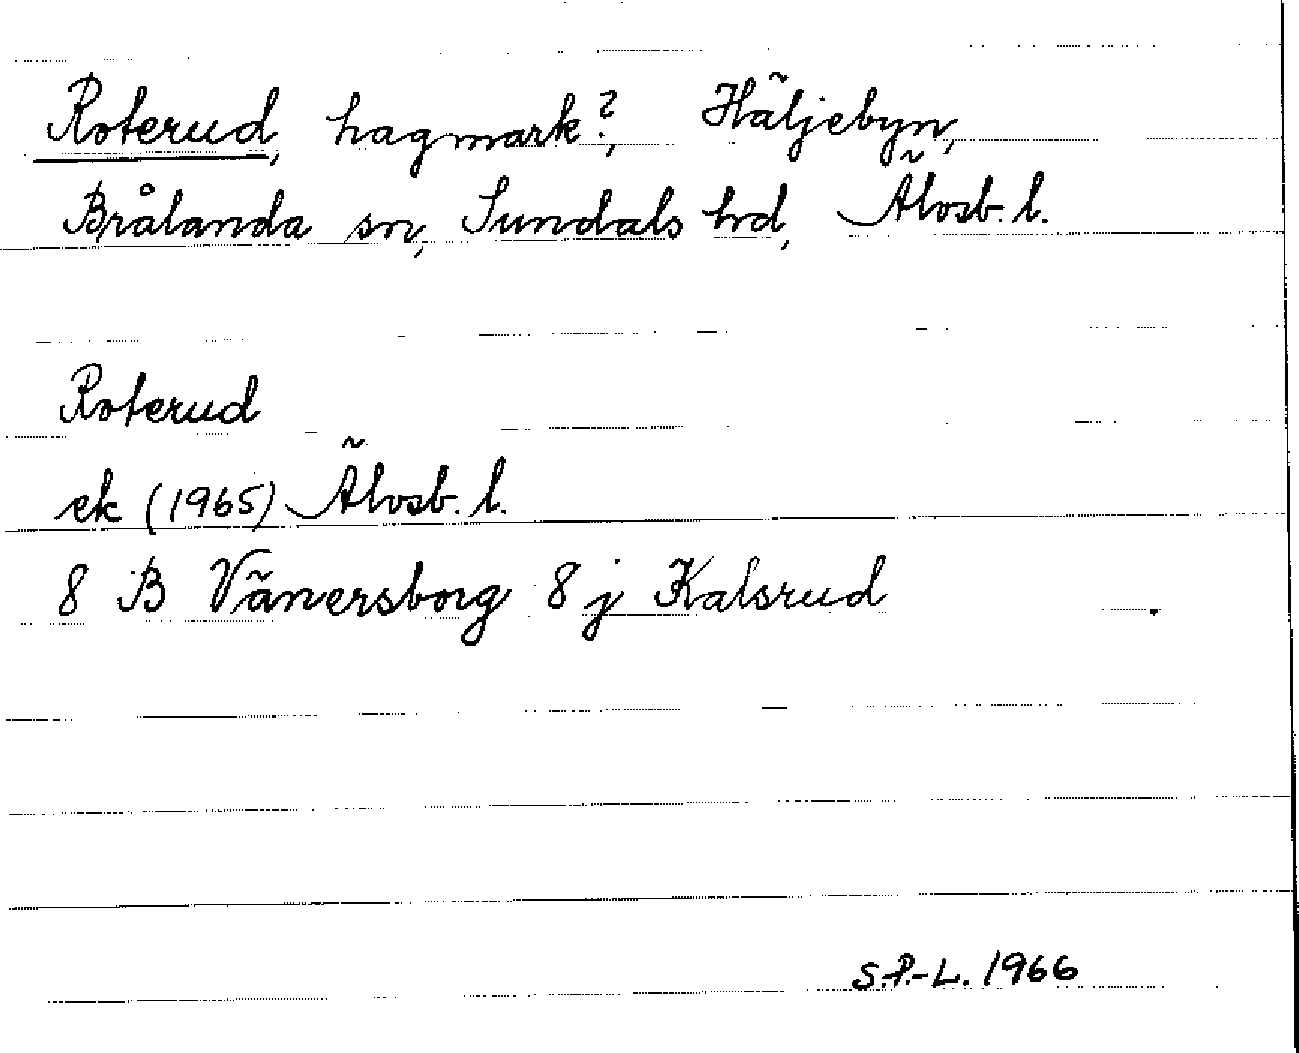 Roterud, hagmark?, Häljebyn,
Brålanda sn, Sundals hd, Älvsb. l.
Roterud
ek (1965) Älvsb. l.
8 B Vänersborg 8 j Kalsrud
S.P.-L. 1966